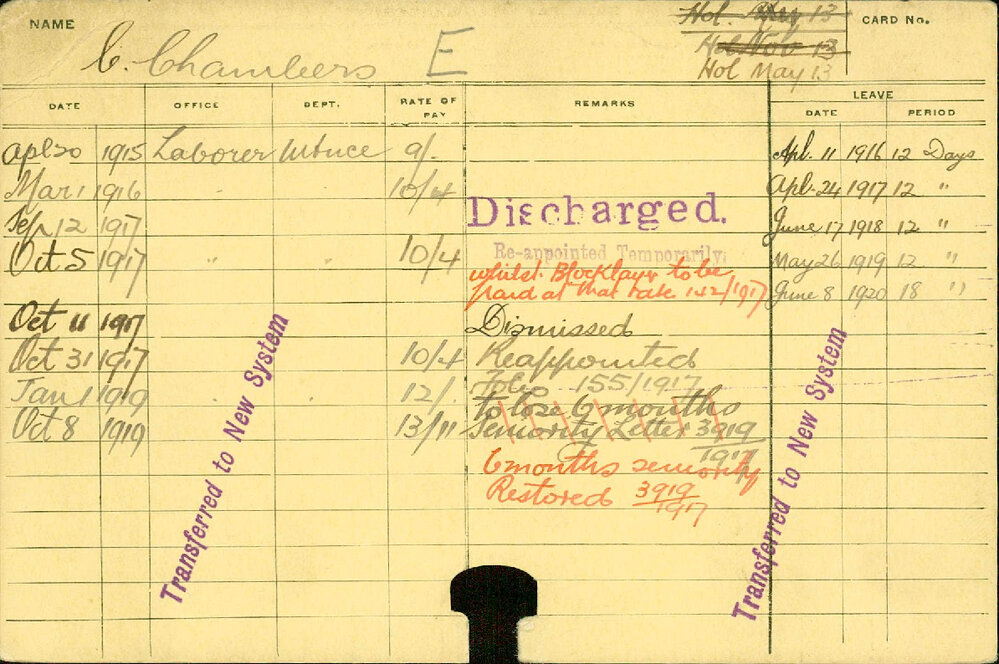 NAME C. Chambers E
Hol. 13
Hol Nov 13
Hol May 13
CARD No.
DATE OFFICE DEPT. RATE OF PAY REMARKS LEAVE DATE PERIOD
Apl 20 1915 Laborer Mtnce 9/.
Apl. 11 1916 12 Days
Mar 1 1916 " 10/4
Apl. 24 1917 12 "
Sep 12 1917 Discharged.
June 17 1918 12 "
Oct 5 1917 " " 10/4 Re-appointed Temporarily
May 26 1919 12 "
whilst Blocklayr to be
paid at that rate 152/1917
June 8 1920 18 "
Oct 11 1917 Dismissed
Oct 31 1917 10/4 Reappointed
155/1917
Jan 1 1919 12/.
to lose 6 months
Oct 8 1919 13/11 Seniority Letter 3919
1917
6 months seniority
Restored 3919
1917
Transferred to New System
Transferred to New System